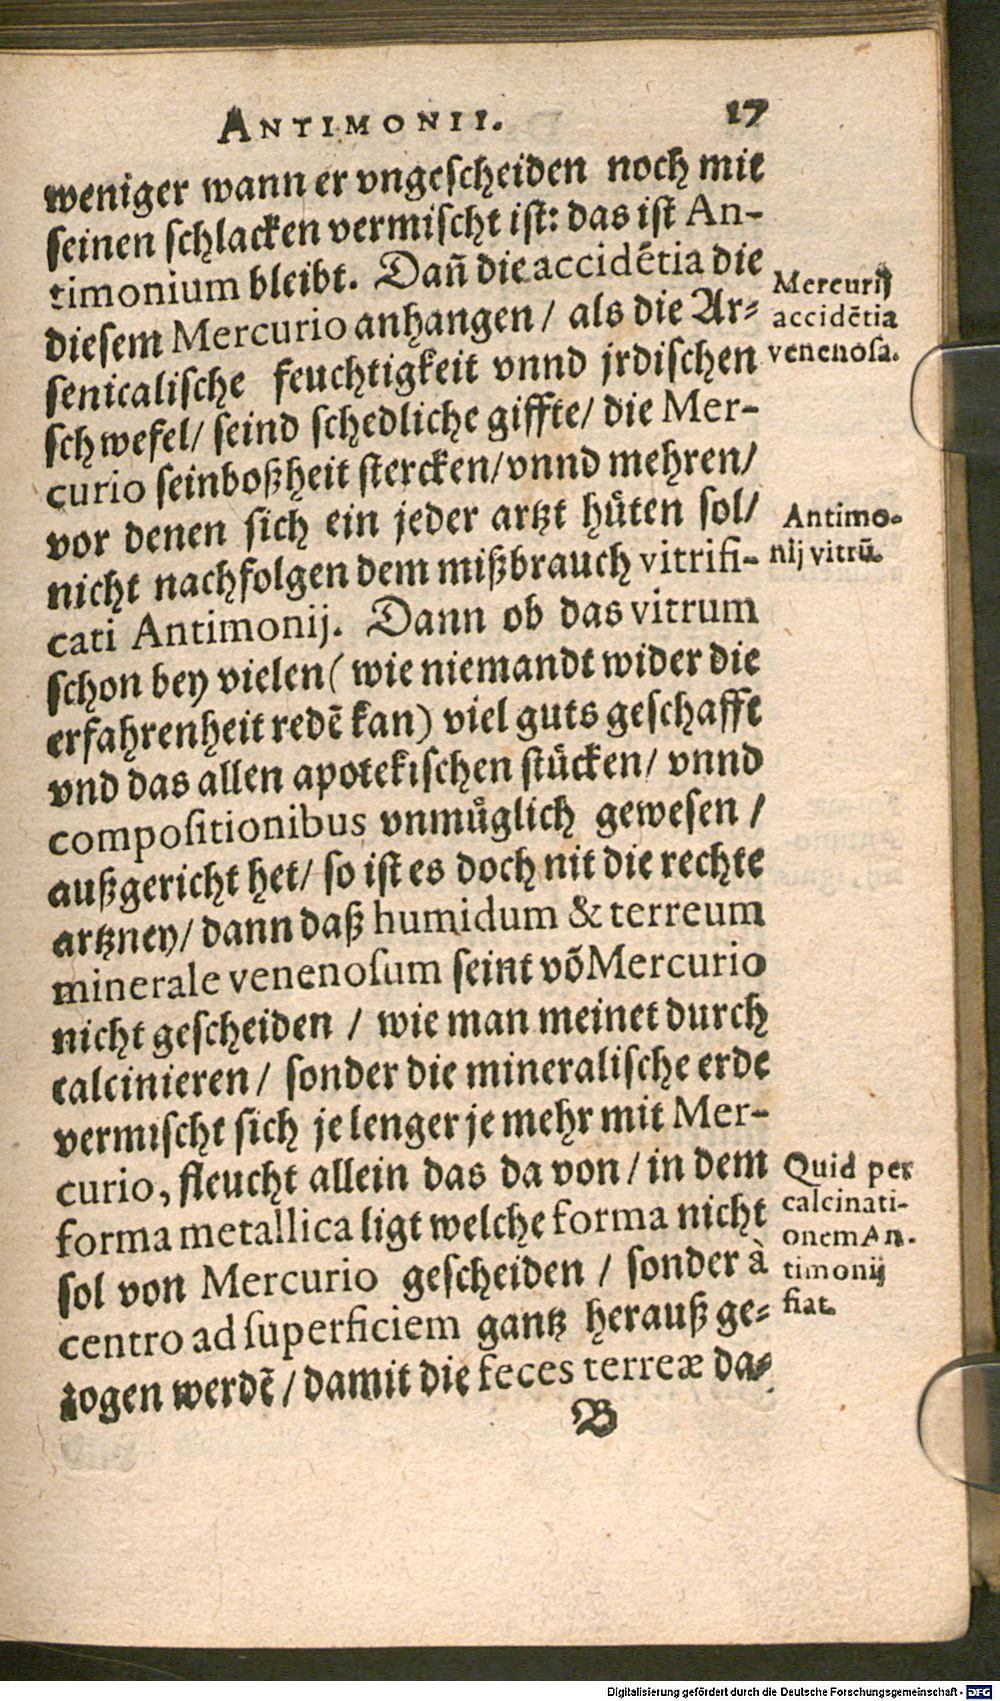 ANTIMONII. 17
weniger wann er vngeſcheiden noch mit
ſeinen ſchlacken vermiſcht iſt: das iſt An-
timonium bleibt. Dañ die accidẽtia die
dieſem Mercurio anhangen / als die Ar-
ſenicaliſche feuchtigkeit vnnd jrdiſchen
ſchwefel/ ſeind ſchedliche giffte/ die Mer-
curio ſeinboßheit ſtercken/vnnd mehren/
vor denen ſich ein jeder artzt huͤten ſol/
nicht nachfolgen dem mißbrauch vitrifi-
cati Antimonij. Dann ob das vitrum
ſchon bey vielen ( wie niemandt wider die
erfahrenheit redẽ kan) viel guts geſchafft
vnd das allen apotekiſchen ſtuͤcken/ vnnd
compoſitionibus vnmuͤglich geweſen /
außgericht het/ ſo iſt es doch nit die rechte
artzney/ dann daß humidum & terreum
minerale venenoſum ſeint võ Mercurio
nicht geſcheiden / wie man meinet durch
calcinieren / ſonder die mineraliſche erde
vermiſcht ſich je lenger je mehr mit Mer-
curio, fleucht allein das da von / in dem
forma metallica ligt welche forma nicht
ſol von Mercurio geſcheiden / ſonder à
centro ad ſuperficiem gantz herauß ge-
zogen werdẽ / damit die feces terreæ da-
B
Mercurij
accidẽtia
venenoſa.
Antimo-
nij vitrũ.
Quid per
calcinati-
onem An-
timonij
fiat.
Digitalisierung gefördert durch die Deutsche Forschungsgemeinschaft - DFG